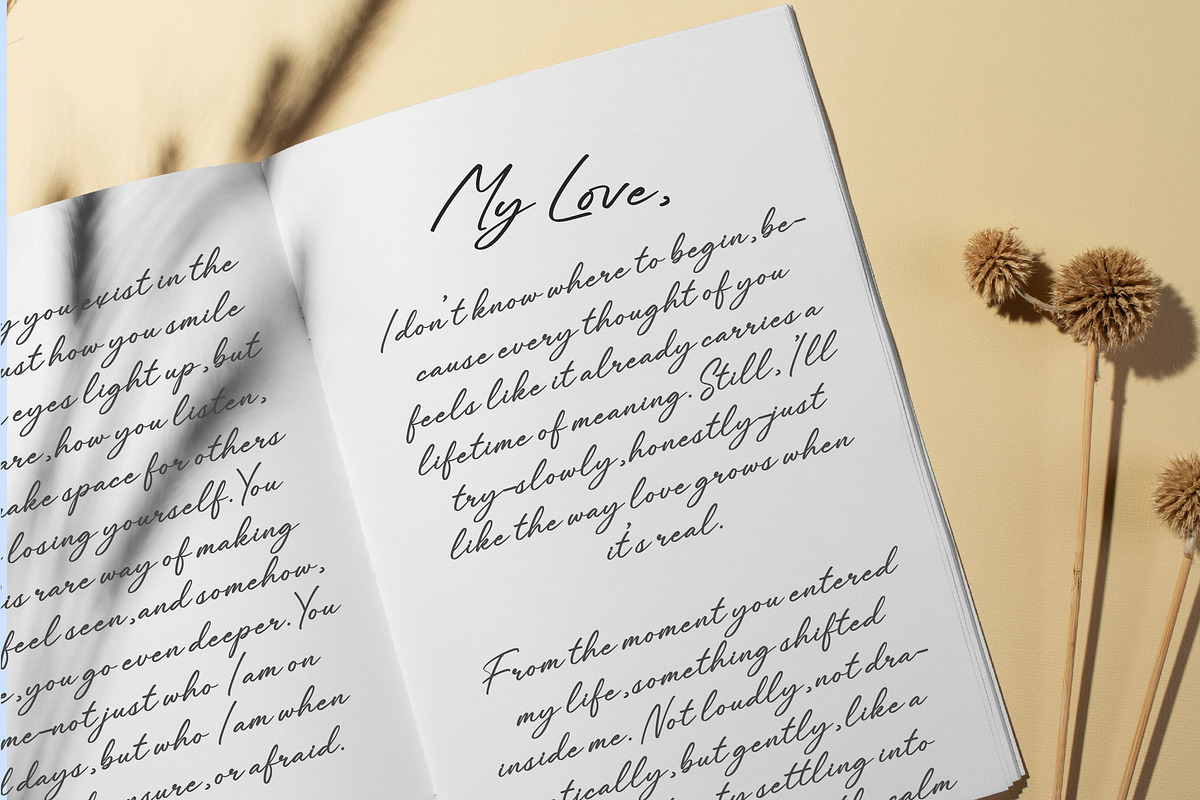 you exist in the
how you smile
eyes light up, but
how you listen,
space for others
losing yourself. You
is rare way of making
feel seen, and somehow,
you go even deeper. You
me—not just who I am on
days, but who I am when
or afraid.
My Love,
I don't know where to begin, be-
cause every thought of you
feels like it already carries a
lifetime of meaning. Still, I'll
try—slowly, honestly—just
like the way love grows when
it's real.
From the moment you entered
my life, something shifted
inside me. Not loudly, not dra-
tically, but gently, like a
settling into
calm